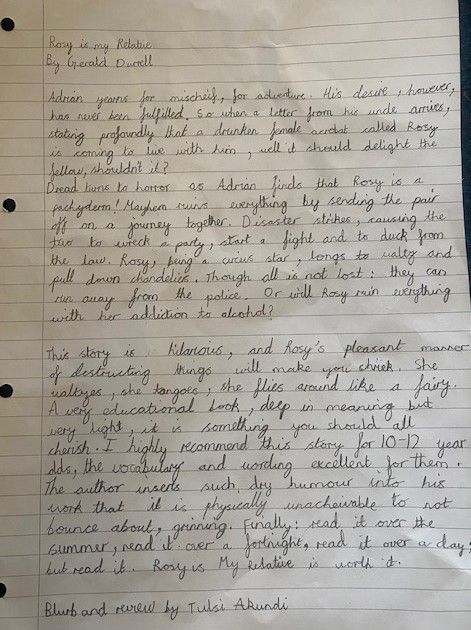 Rosy is my Relative
By Gerald Durrell
Adrian yearns for mischeif, for adventure. His desire, however,
has never been fulfilled. So when a letter from his uncle arrives,
stating profoundly that a drunken female acrobat called Rosy
is coming to live with him, well it should delight the
fellow, shouldn't it?
Dread turns to horror as Adrian finds that Rosy is a
pachyderm! Mayhem ruins everything by sending the pair
off on a journey together. Disaster strikes, causing the
two to wreck a party, start a fight and to duck from
the law. Rosy, being a circus star, longs to waltz and
pull down chandeliers. Though all is not lost: they can
run away from the police. Or will Rosy ruin everything
with her addiction to alcohol?
This story is hilarious, and Rosy's pleasant manner
of destructing things will make you shriek. She
waltzes, she tangoes, she flies around like a fairy.
A very educational book, deep in meaning but
very light, it is something you should all
cherish. I highly recommend this story for 10-12 year
olds, the vocabulary and wording excellent for them.
The author inserts such dry humour into his
work that it is physically unacheivable to not
bounce about, grinning. Finally: read it over the
summer, read it over a fortnight, read it over a day;
but read it. Rosy is My Relative is worth it.
Blurb and review by Tulsi Akundi